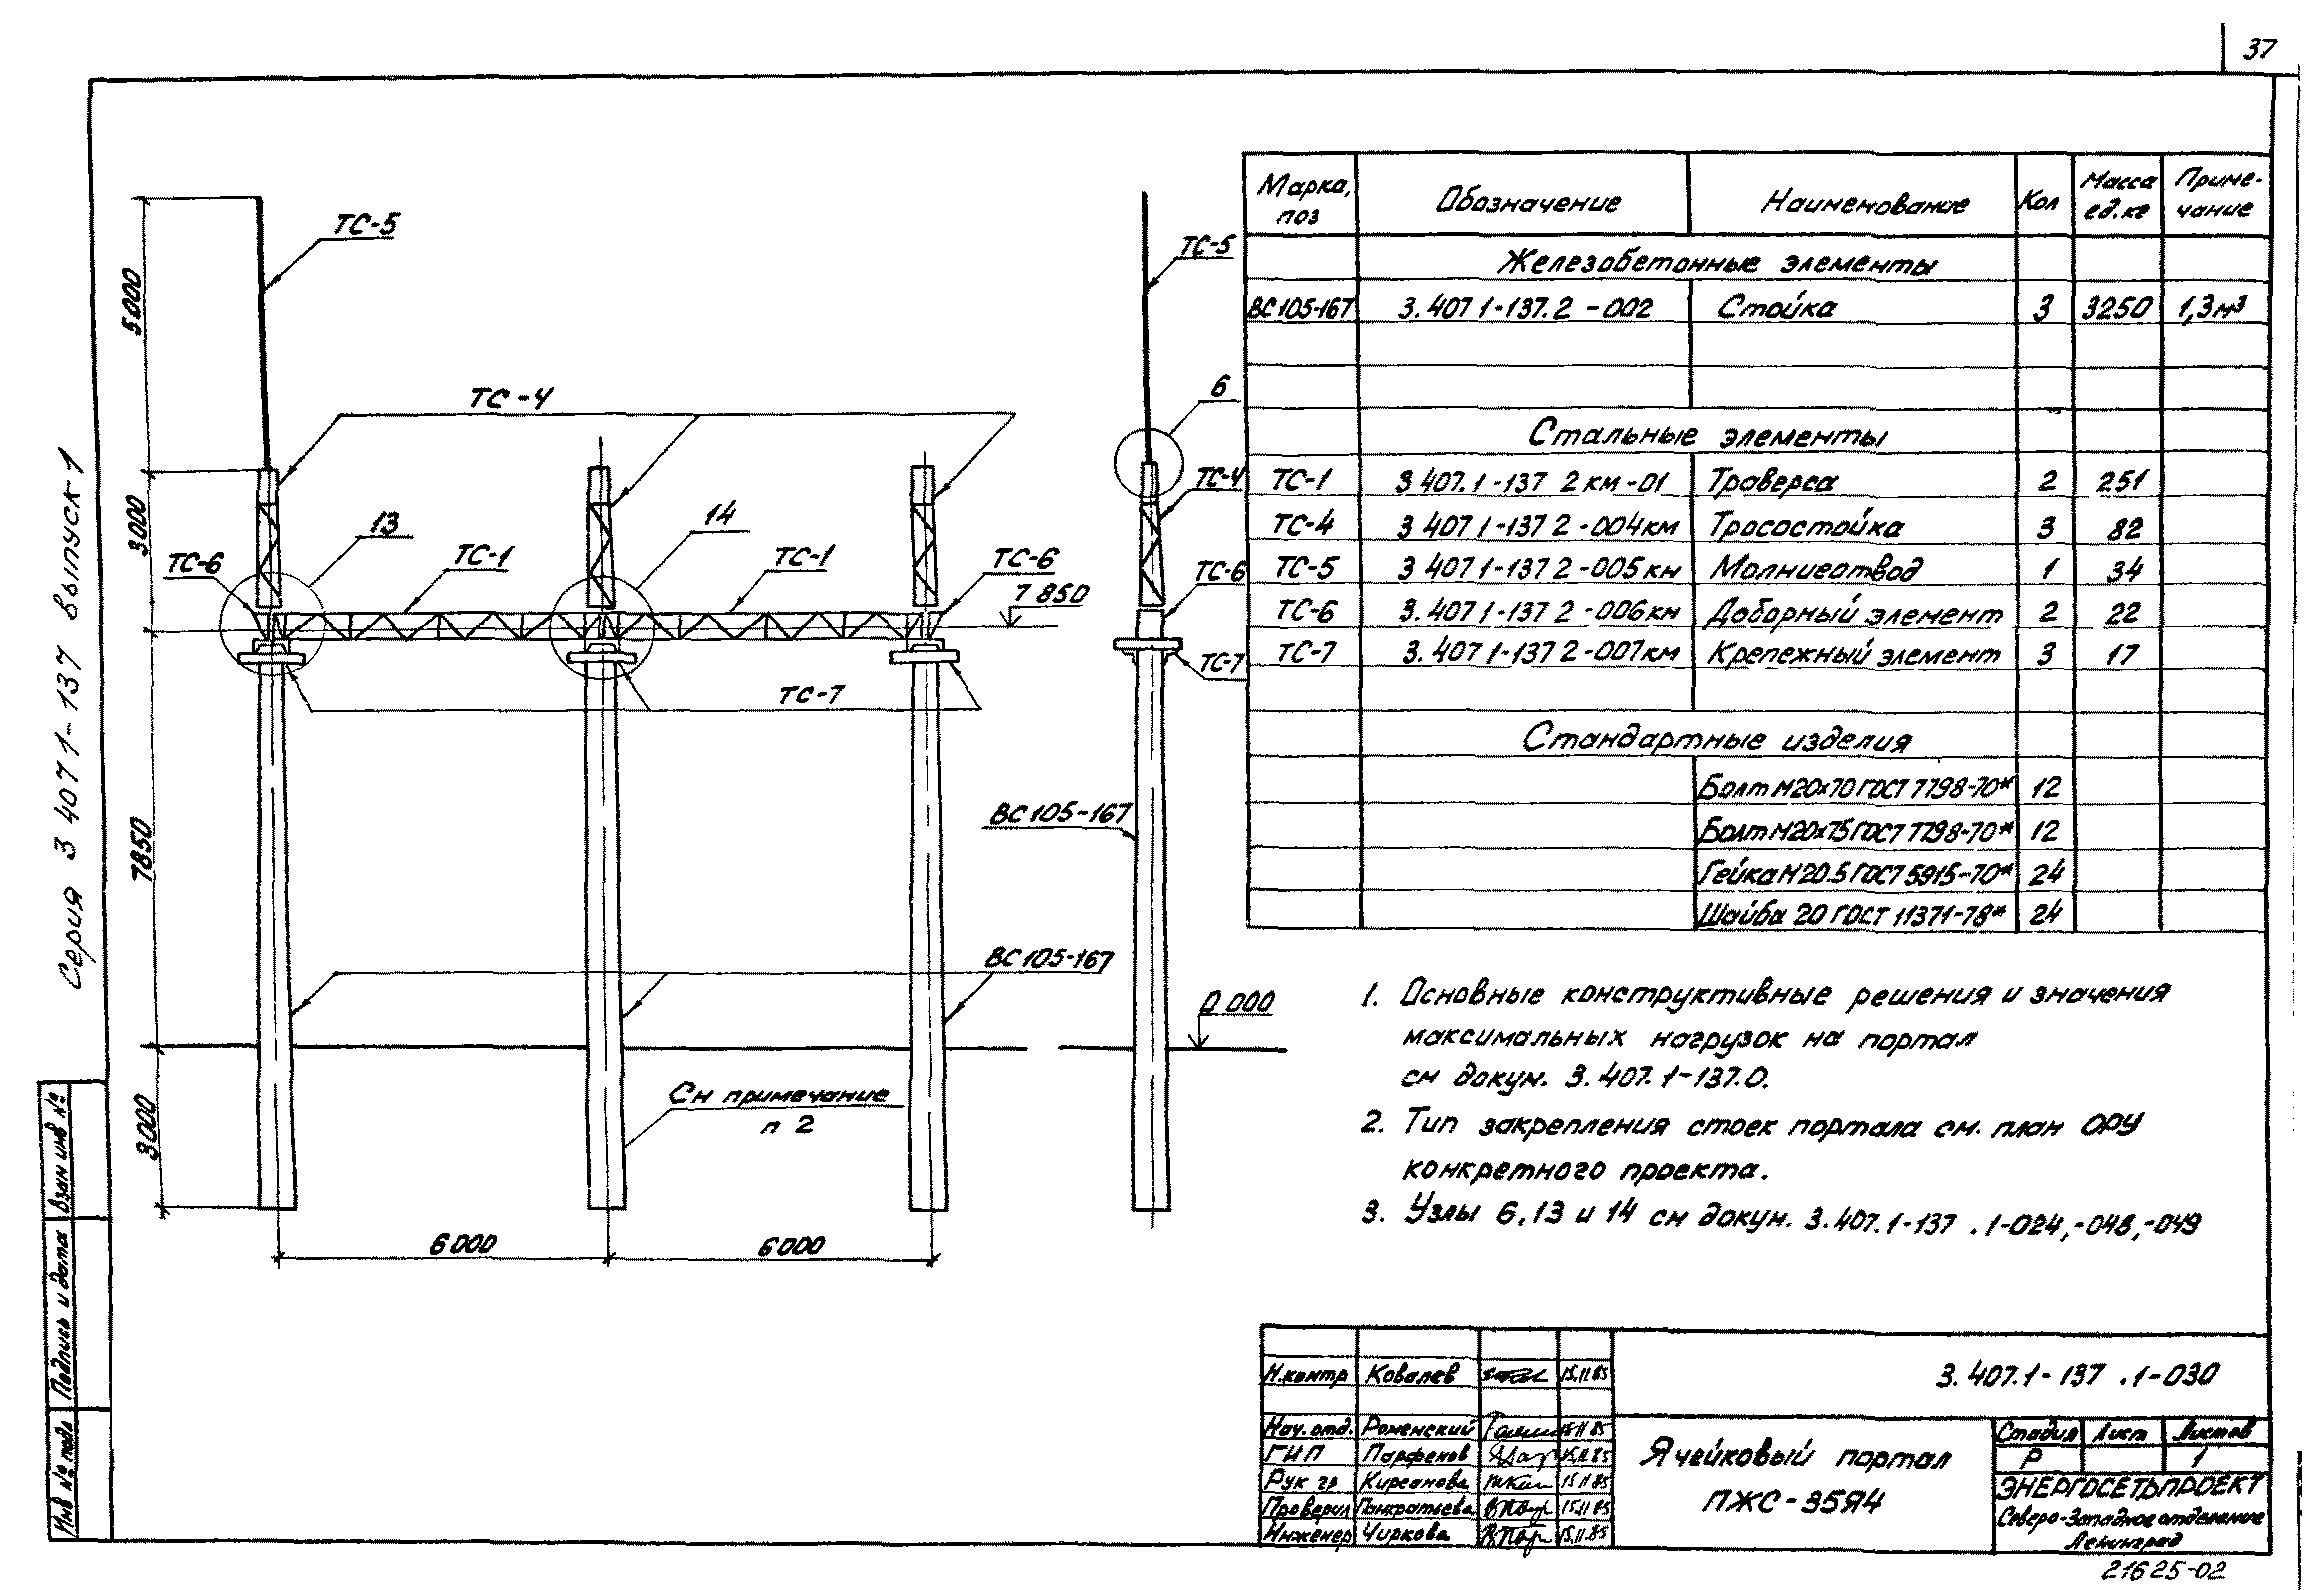 37
Серия 3 407 1-137 выпуск 1
5000
3000
7850
3000
ТС-5
ТС-4
13
14
ТС-6
ТС-1
ТС-1
ТС-6
7 850
ТС-7
ВС105-167
ВС105-167
См примечание
п 2
6000
6000
ТС-5
6
ТС-4
ТС-6
ТС-7
0 000
Марка, поз Обозначение Наименование Кол Масса ед.кг Приме-чание
Железобетонные элементы
ВС105-167 3.407 1-137.2 -002 Стойка 3 3250 1,3м³
Стальные элементы
ТС-1 3 407.1-137 2км-01 Траверса 2 251
ТС-4 3 407 1-137 2-004км Тросостойка 3 82
ТС-5 3 407 1-137 2-005км Молниеотвод 1 34
ТС-6 3.407 1-137 2-006км Доборный элемент 2 22
ТС-7 3.407 1-137 2-007км Крепежный элемент 3 17
Стандартные изделия
Болт М20х70 ГОСТ 7798-70* 12
Болт М20х75 ГОСТ 7798-70* 12
Гайка М20.5 ГОСТ 5915-70* 24
Шайба 20 ГОСТ 11371-78* 24
1. Основные конструктивные решения и значения
максимальных нагрузок на портал
см докум. 3.407.1-137.0.
2. Тип закрепления стоек портала см. план ОРУ
конкретного проекта.
3. Узлы 6,13 и 14 см докум. 3.407.1-137 .1-024,-048,-049
Н.контр Ковалев 15.11.85
Нач.отд. Роменский 15.11.85
ГИП Парфенов 15.11.85
Рук гр Кирсанова 15.11.85
Проверил Панкратьева 15.11.85
Инженер Чиркова 15.11.85
3.407.1-137 .1-030
Ячейковый портал
ПЖС-35Я4
Стадия Лист Листов
Р 1
ЭНЕРГОСЕТЬПРОЕКТ
Северо-Западное отделение
Ленинград
21625-02
Взам инв №
Подпись и дата
Инв № подл